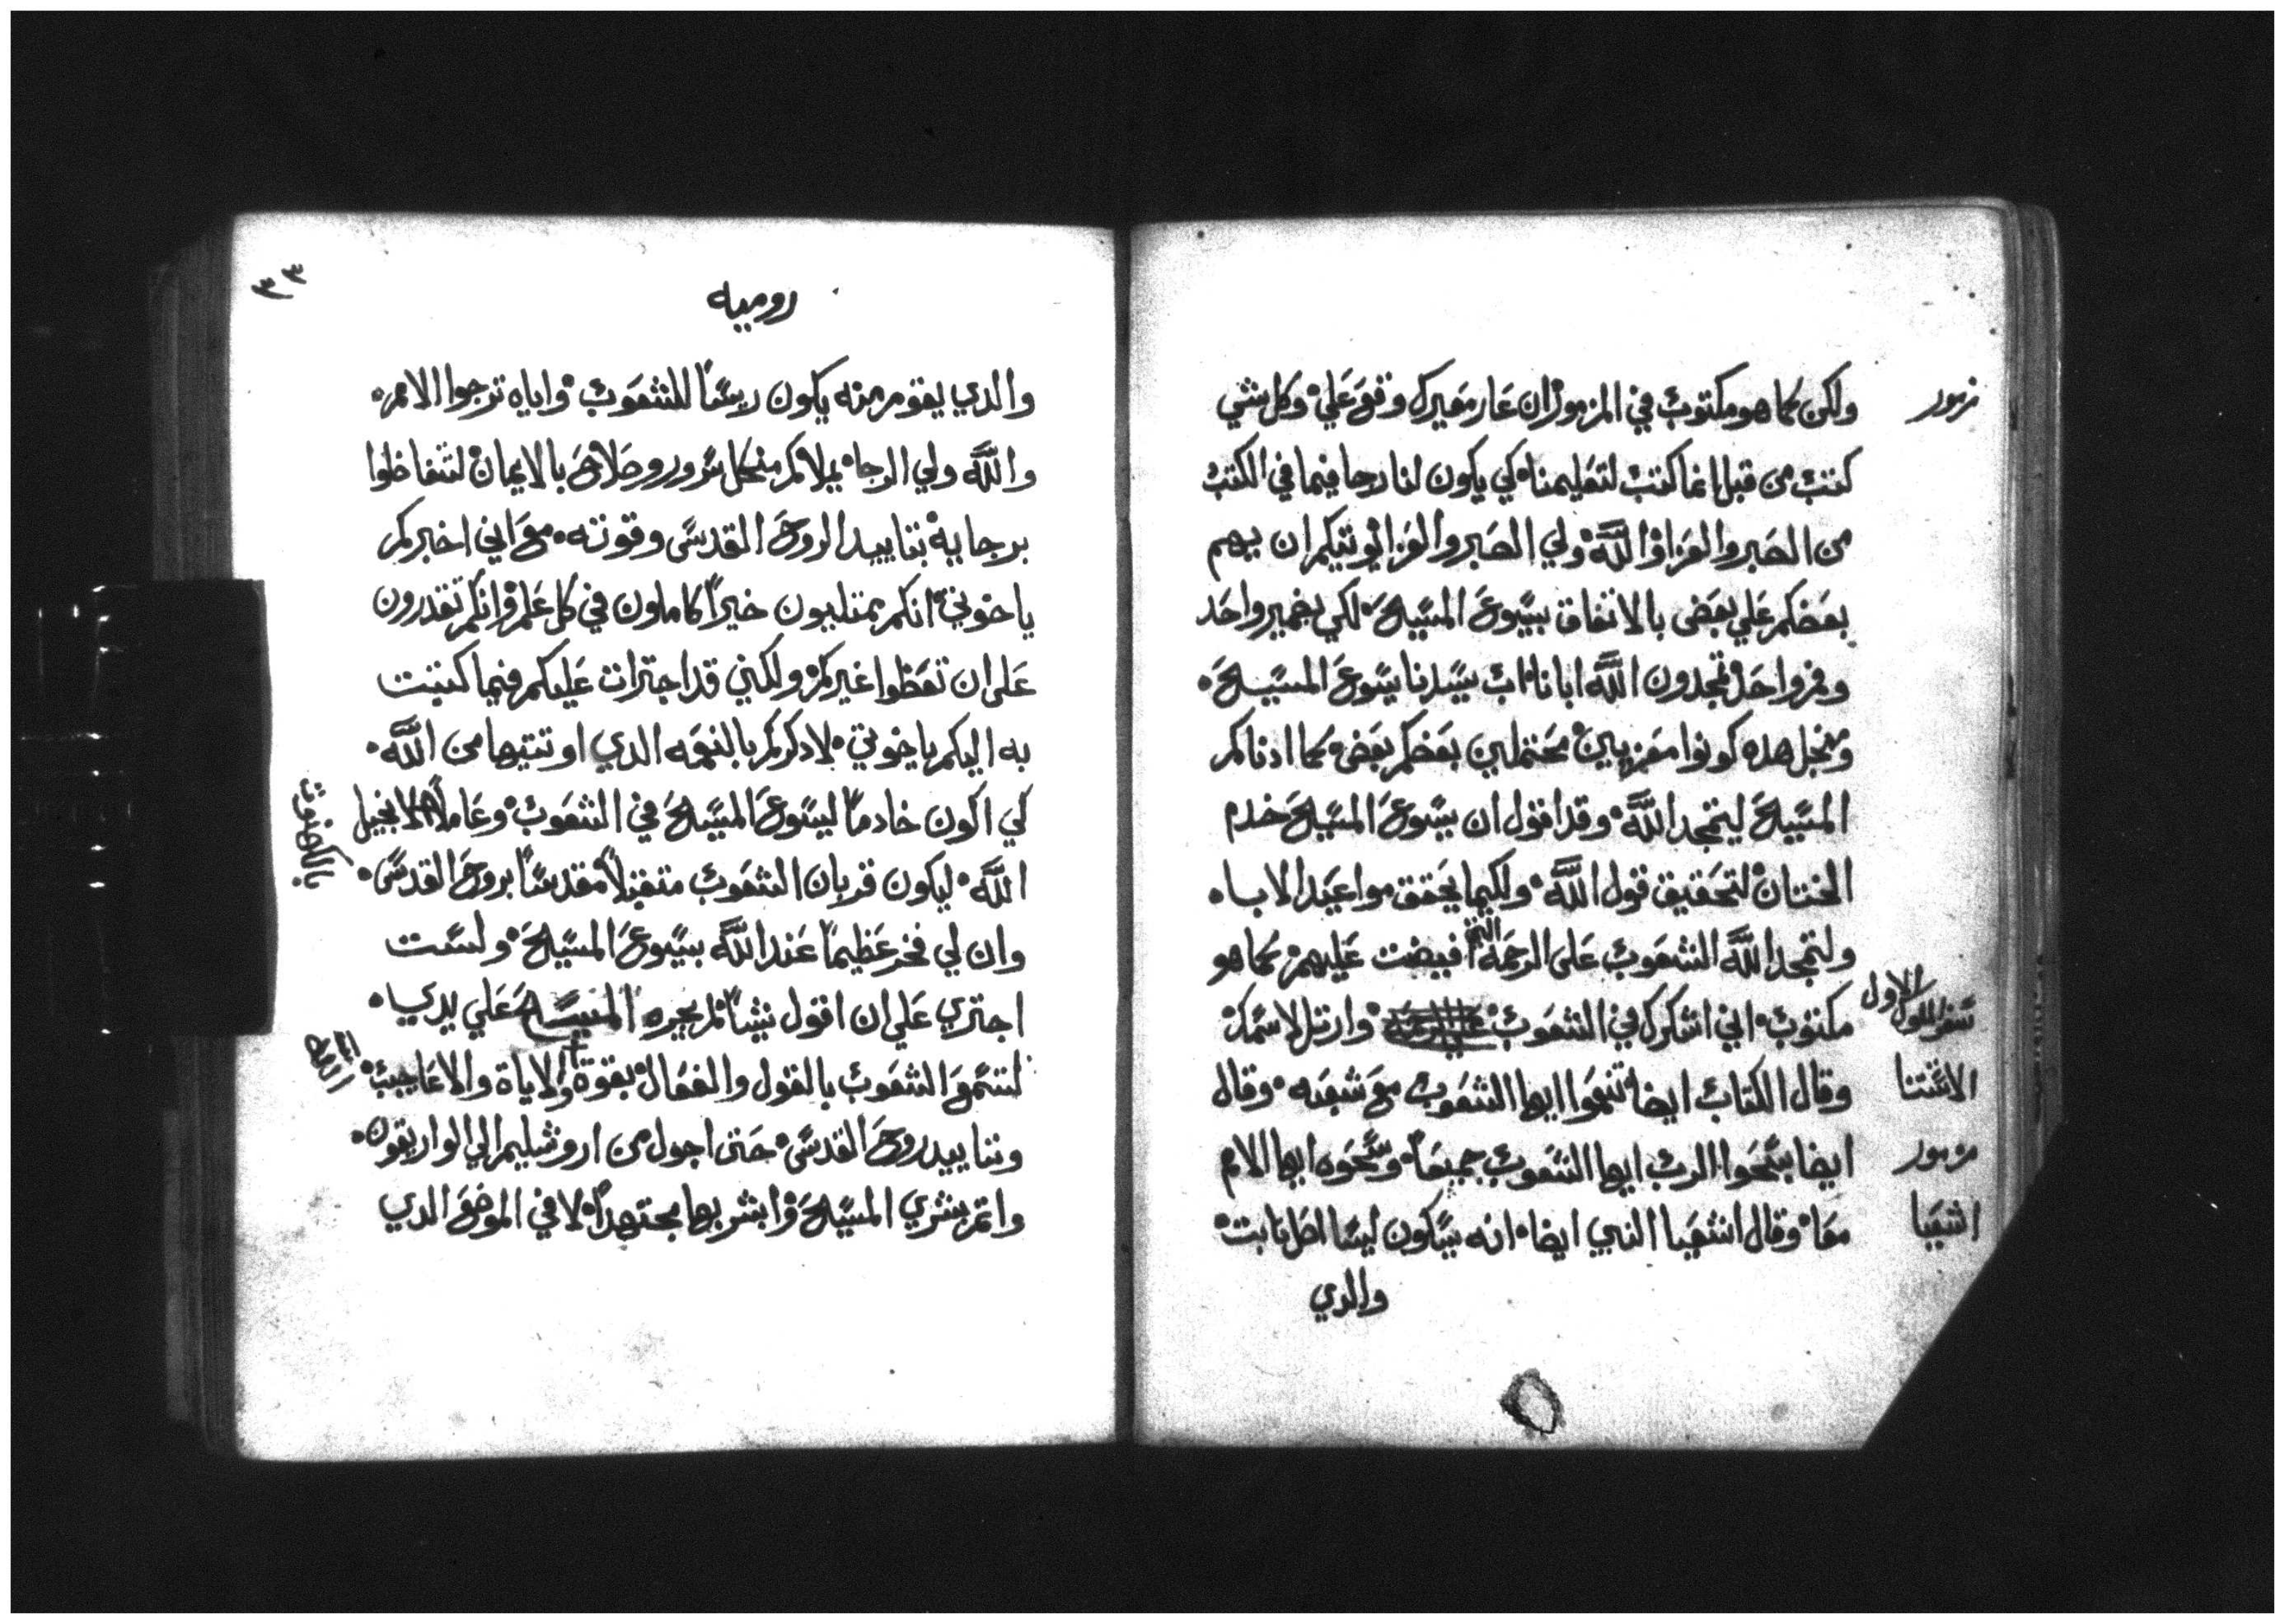 مزمور
ولكن كما هو مكتوب في المزمور ان عار معيرك وقع علي وكل شي
كتب من قبل انما كتب لتعليمنا كي يكون لنا رجا فيما في الكتب
من الصبر والعزا والله ولي الصبر والعزا يوتيكم ان يهم
بعضكم علي بعض بالاتفاق بيسوع المسيح لكي بضمير واحد
وفم واحد تمجدون الله ابانا اب سيدنا يسوع المسيح
ومنجل هده كونوا مقربين محتملين بعضكم بعض كما ادناكم
المسيح ليتمجد الله وقد اقول ان يسوع المسيح خدم
الختان لتحقيق قول الله ولكيما يحقق مواعيد الابا
ولتمجد الله الشعوب علي الرحمة التي افيضت عليهم كما هو
سفر الملوك الاول
مكتوب اني اشكرك في الشعوب وارتل لاسمك
الاستتنا
وقال الكتاب ايضا تنعموا ايها الشعوب مع شعبه وقال
مزمور
ايضا سبحوا الرب ايها الشعوب جميعا وسبحوه ايها الامم
اشعيا
معا وقال اشعيا النبي ايضا انه سيكون ليسا اصل نابت
والدي
٣٣
روميه
والدي يقوم منه يكون ريسا للشعوب واياه ترجوا الامم
والله ولي الرجا يملاكم منكل سرور وصلاح بالايمان لتتفاضلوا
برجايه بتاييد الروح القدس وقوته مع اني اخبركم
ياخوتي انكم ممتليون خيرا كاملون في كل علم وانكم تقدرون
علي ان تعظوا غيركم ولكني قد اجترات عليكم فيما كتبت
به اليكم ياخوتي لادكركم بالنعمه الدي اوتيتها من الله
كي اكون خادما ليسوع المسيح في الشعوب وعاملا لانجيل
الله ليكون قربان الشعوب متقبلا مقدسا بروح القدس
وان لي فخر عظيما عند الله بيسوع المسيح ولست
اجتري علي ان اقول شيا لم يجره المسيح علي يدي
لتسمع الشعوب بالقول والفعال بقوة والاياة والاعاجيب
وتاييد روح القدس حتي اجول من اروشليم الي الواريقون
واتم بشري المسيح وابشر بها مجتهدا لا في الموضع الدي